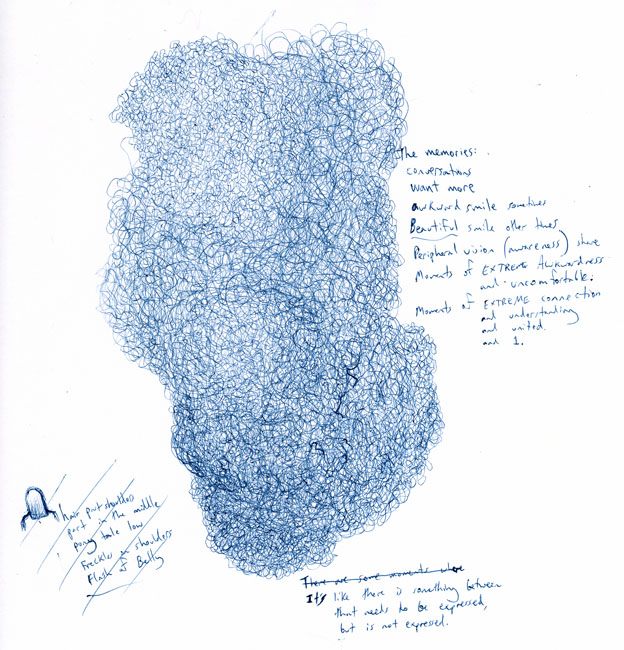 The memories:
conversations
want more
awkward smile sometimes
Beautiful smile other times
Peripheral vision (awareness) share
Moments of EXTREME AWkwardness
and uncomfortable.
Moments of EXTREME connection
and understanding
and united.
and 1.
hair past shoulders
part in the middle
pony tale low
Freckles on shoulders
Flash of Belly
There are some moments where
It's like there is something between
that needs to be expressed,
but is not expressed.